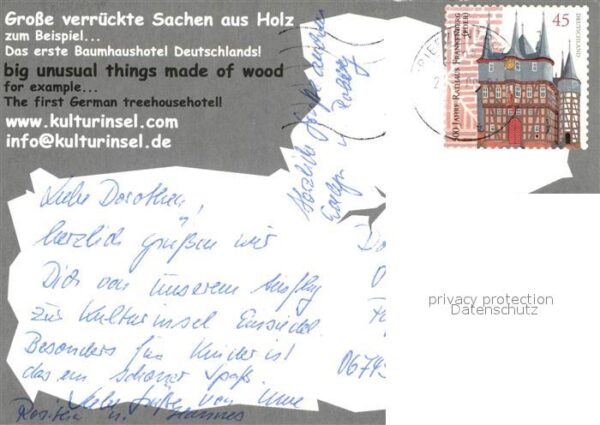 Große verrückte Sachen aus Holz
zum Beispiel...
Das erste Baumhaushotel Deutschlands!
big unusual things made of wood
for example...
The first German treehousehotel!
www.kulturinsel.com
info@kulturinsel.de
Liebe Dorothea,
herzlich grüßen wir
Dich von unserem Ausflug
zur Kulturinsel Einsiedel.
Besonders für Kinder ist
das ein schöner Spaß.
Viele Grüße von
u. Hannes
Herzliche Grüße
Evelyn u.
500 JAHRE RATHAUS FRANKENBERG
(EDER)
45
DEUTSCHLAND
BRIEF
Do
0674
privacy protection
Datenschutz